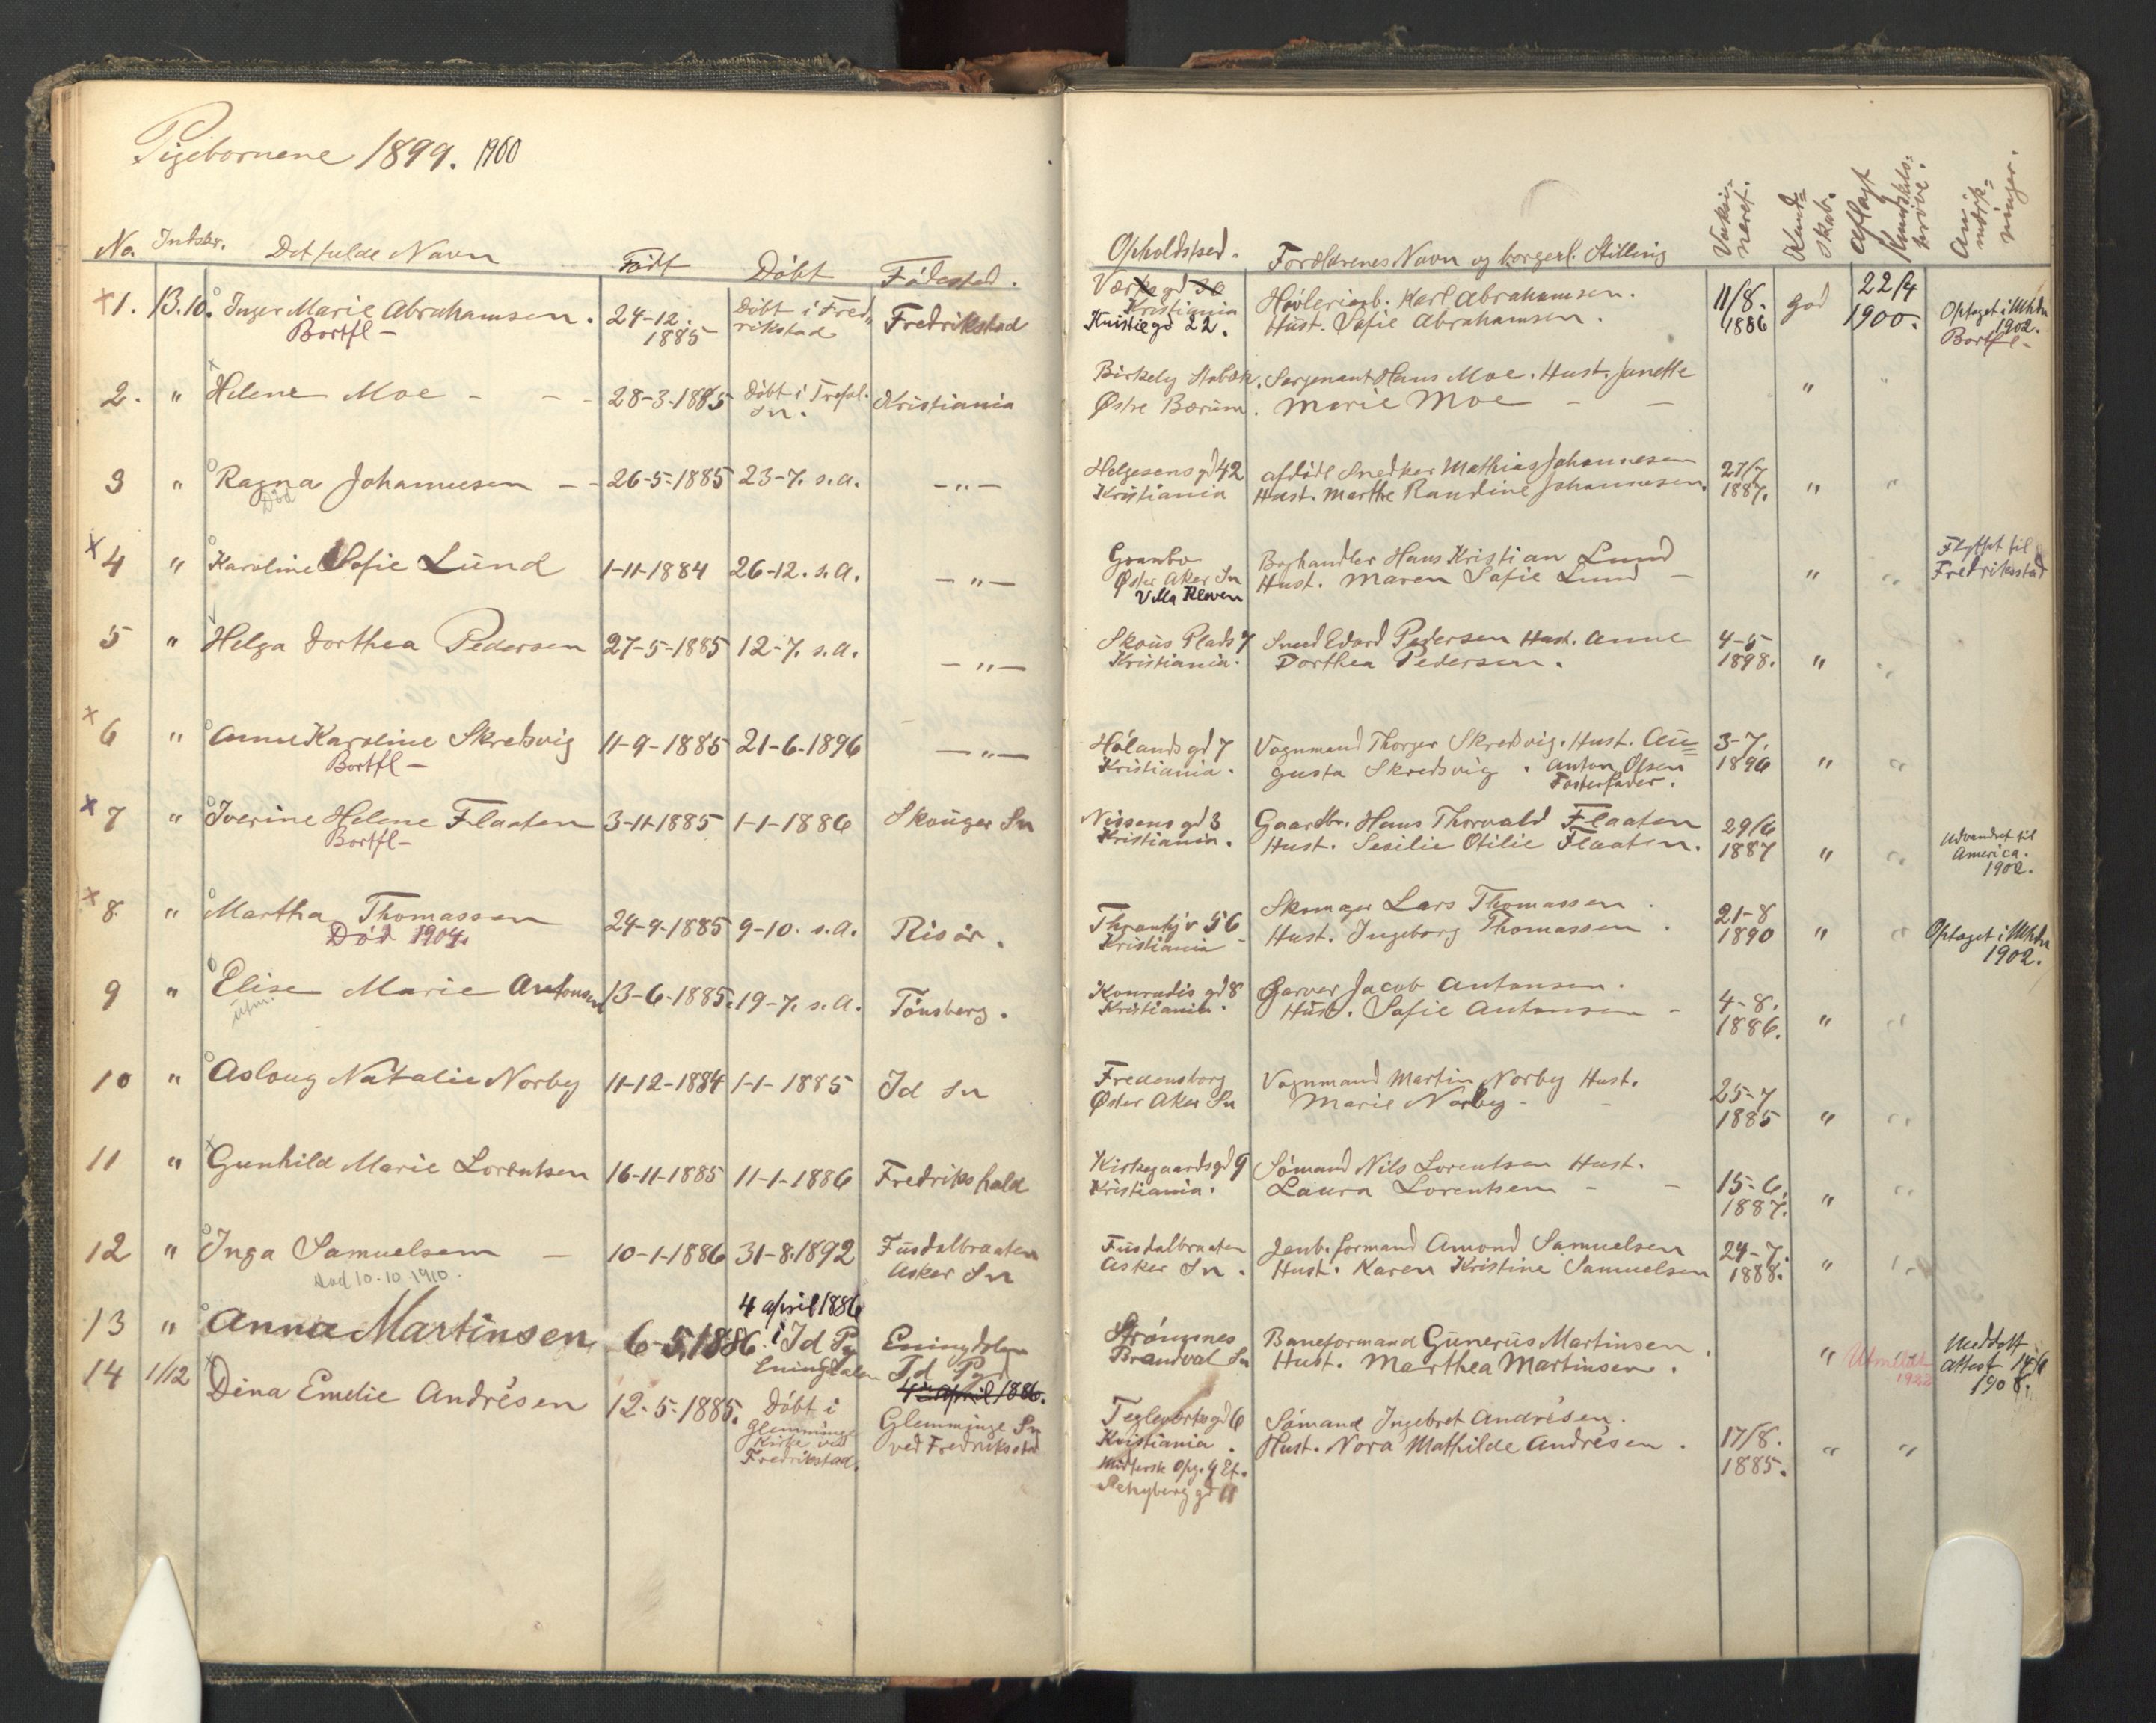 Pigebornene 1899. 1900
No. Indskr. Det fulde Navn Født Døbt Fødested. Opholdssted. Forældrenes Navn og borgerl. Stilling Vakcineret. Kundskab. Aflagt Kundskabsprøve. Anmærkninger.
×1. 13.10. Inger Marie Abrahamsen. 24-12. 1885 Døbt i Fredrikstad Fredrikstad
Bortfl-
Kristiania gd 22. Høvleriarb. Karl Abrahamsen. 11/8. 1886 god 22/4 1900. Optaget i Mhdn 1902.
Hust. Sofie Abrahamsen. Bortfl-
2. " Helene Moe - - - 28-3-1885 Døbt i Trefol. Sn. Kristiania
Birkely Stabæk. Sergenant Hans Moe. Hust. Janette " "
Østre Bærum. Marie Moe - -
3 " Ragna Johannesen - - 26-5-1885 23-7. s.a. -"-
Død
Helgesens gd 42 afdøde Snedker Mathias Johannesen 27/7
Kristiania Hust. Marthe Randine Johannesen. 1887. " "
×4 " Karoline Sofie Lund 1-11-1884 26-12. s.a. -"-
Granbo Boghandler Hans Kristian Lund Flyttet til
Øster Aker Sn Hust. Maren Sofie Lund - " " Fredriksstad
Villa Kleven
5 " Helga Dorthea Pedersen 27-5-1885 12-7. s.a. -"-
Skous Plads 7 Sned Edvard Pedersen Hust. Anne 4-5
Kristiania. Dorthea Pedersen. 1898. " "
×6 " Anne Karoline Skredsvig 11-9-1885 21-6-1896 -"-
Bortfl-
Hølands gd 7 Vognmand Thorger Skredsvig. Hust. Au= 3-7.
Kristiania. gusta Skredsvig. Anton Olsen 1896 " "
Fosterfader.
×7 " Iverine Helene Flaaten 3-11-1885 1-1-1886 Skouger Sn
Bortfl-
Nissens gd 3 Gaardbr. Hans Thorvald Flaaten 29/6 Udvandret til
Kristiania. Hust. Sesilie Otilie Flaaten. 1887 " " America.
1902.
×8. " Martha Thomassen 24-9-1885 9-10. s.a. Risør.
Død 1904.
Skomager Lars Thomassen. 21-8
Kristiania Hust. Ingeborg Thomassen. 1890 " " Optaget i Mhdn
1902.
9 " Elise Marie Antonsen 13-6-1885. 19-7. s.a. Tønsberg.
utm.
Konradis gd 8 Garver Jacob Antonsen. 4-8.
Kristiania. Hust. Sofie Antonsen - 1886. " "
10 " Aslaug Natalie Norby 11-12-1884 1-1-1885 Id Sn
Fredensborg Vognmand Martin Norby Hust. 25-7
Øster Aker Sn Marie Norby - - 1885 " "
11 " Gunhild Marie Lorentsen 16-11-1885 11-1-1886 Fredrikshald
Kirkegaardsgd 9 Sømand Nils Lorentsen Hust. 15-6.
Kristiania. Laura Lorentsen - - 1887. " "
12 " Inga Samuelsen - 10-1-1886 31-8-1892 Fusdalbraaten
død 10.10 1910. Asker Sn
Fusdalbraaten Jenb. formand Amond Samuelsen 24-7.
Asker Sn. Hust. Karen Kristine Samuelsen 1888. " "
13 " Anna Martinsen 6-5.1886. 4 april 1886 i Id Pg Eningdalen Eningdalen
Id Pgd
4 april 1886.
Strømsnes Baneformand Gunerius Martinsen. Meddelt
Brandval Sn Hust. Marthea Martinsen. " Utmeldt Attest 14/6
1922 1908.
14 1/12 Dina Emelie Andrésen 12-5-1885. Døbt i Glemminge Kirke ved Fredrikstad. Glemminge Sn
ved Fredriksstad
Teglverksgd 6 Sømand Ingebret Andrésen. 17/8.
Kristiania. Hust. Nora Mathilde Andrésen. 1885. " "
Opg. 4 Et.
gd 11